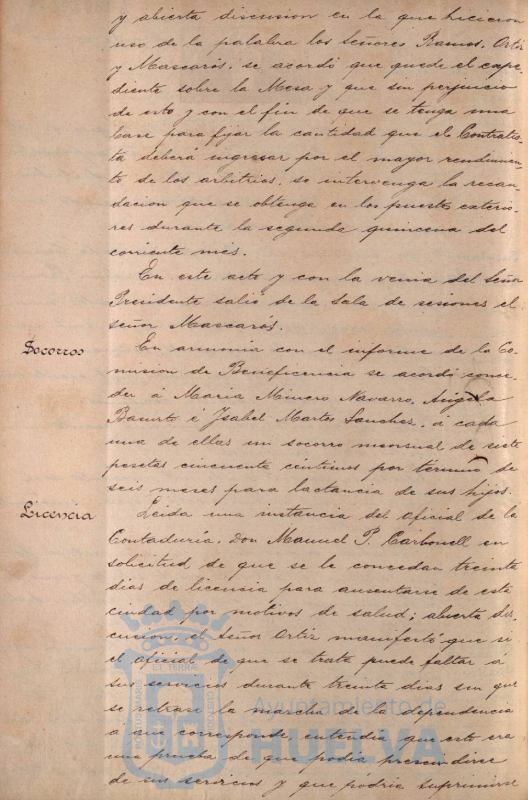 y abierta discusion en la que hicieron
uso de la palabra los Señores Ramos, Ortiz
y Mascarós, se acordó que quede el expe
diente sobre la Mesa y que sin perjuicio
de esto y con el fin de que se tenga una
base para fijar la cantidad que el Contratis-
ta deberá ingresar por el mayor rendimien-
to de los arbitrios, se intervenga la recau
dacion que se obtenga en los puestos exterio-
res durante la segunda quincena del
corriente mes.
En este acto y con la venia del Señor
Presidente salió de la Sala de sesiones el
señor Mascarós.
Socorros
En armonía con el informe de la Co
mision de Beneficencia se acordó conce-
der á Maria Minero Navarro, Angela
Basurto é Isabel Martos Sanchez, á cada
una de ellas un socorro mensual de siete
pesetas cincuenta céntimos por término de
seis meses para lactancia de sus hijos.
Licencia
Leida una instancia del oficial de la
Contaduría, Don Manuel P. Carbonell en
solicitud de que se le concedan treinta
dias de licencia para ausentarse de esta
ciudad por motivos de salud; abierta dis-
cusion, el Señor Ortiz manifestó que si
el oficial de que se trata puede faltar á
sus servicios durante treinta dias sin que
se retrase la marcha de la dependencia
a que corresponde, entendia que esto era
una prueba de que podia prescindirse
de sus servicios y que podría suprimirse
Ayuntamiento de
HUELVA